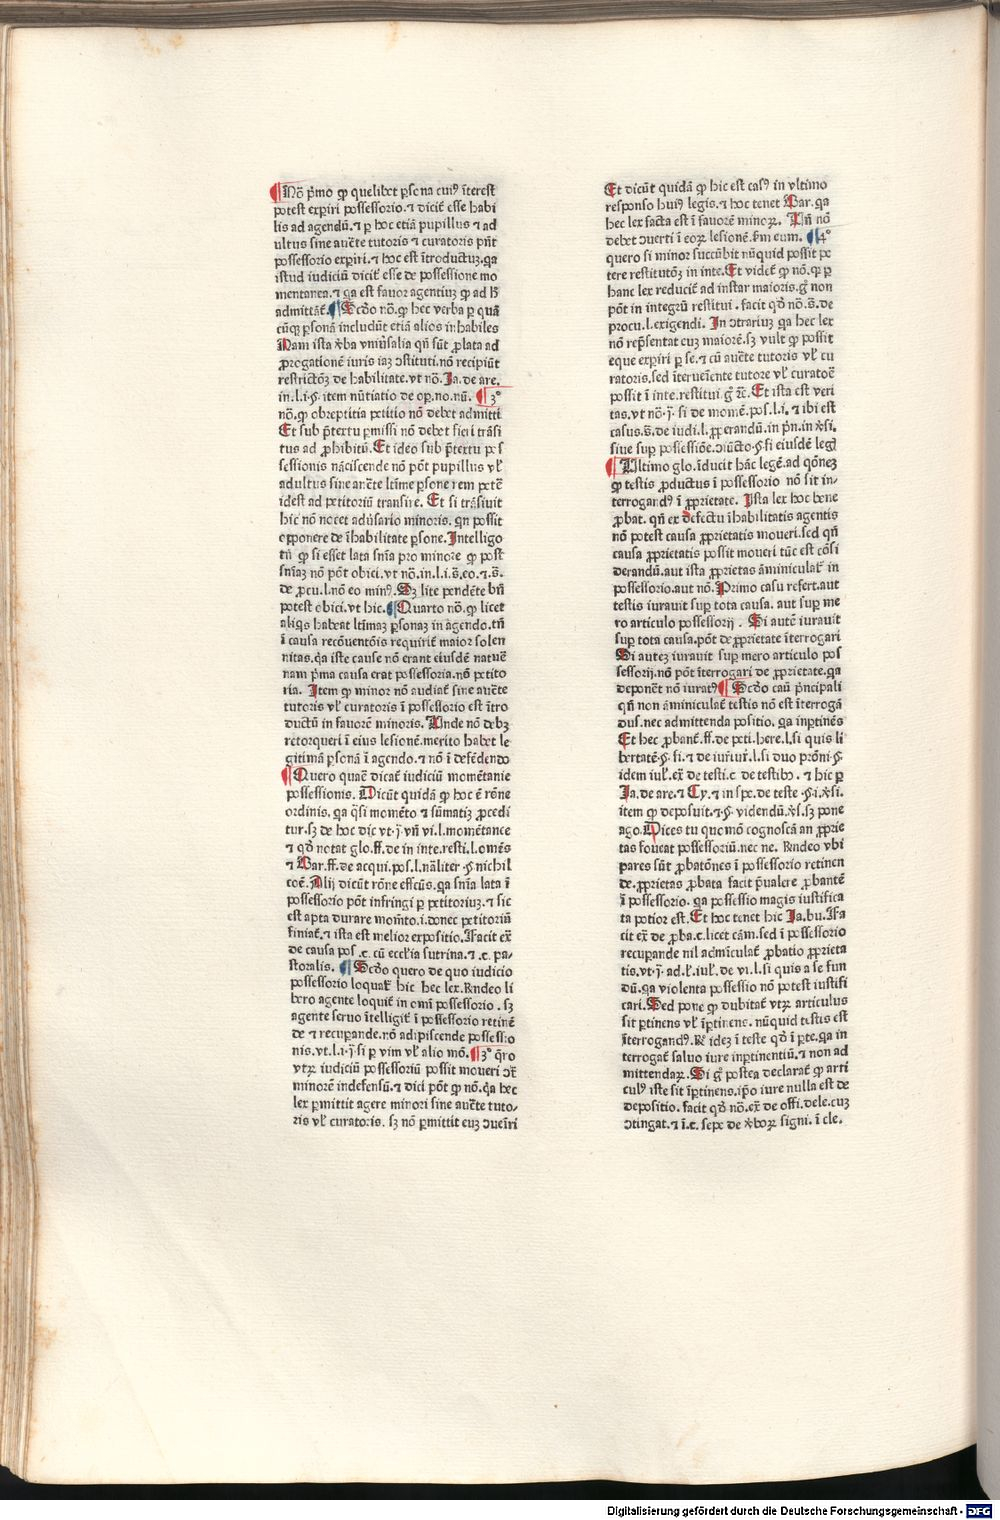 ¶ Nō p̄mo ꝙ quelibet p̲sona cui⁹ īterest
potest exp̲iri possessorio.⁊ dicit̄ esse habi
lis ad agendū.⁊ p̲ hoc etiā pupillus ⁊ ad
ultus sine auc̄te tutoris ⁊ curatoris pn̄t
possessorio exp̲iri.⁊ hoc est ītroductuꝫ.qa
istud iudiciū dicit̄ esse de possessione mo
mentanea.⁊ qa est fauor agentiuꝫ ꝙ ad h̄
admittāt̄.¶ Scd̄o nō.ꝙ hec verba p̲ quā
cūqꝫ p̲sonā includūt etiā alios inhabiles
Nam ista v̾ba vniu̾salia qn̄ sūt ꝓlata ad
ꝓrogationē iuris iaꝫ ɔstituti.nō recipiūt
restrictōꝫ de habilitate.vt nō.Ja.de are.
in.l.i.§ item nūtiatio de op̲.no.nū. ¶ 3°
nō.ꝙ obreptitia petitio nō debet admitti
Et sub p̄textu p̲missi nō debet fieri trāsi
tus ad ꝓhibitū.Et ideo sub p̄textu pos
sessionis nāciscende nō pōt pupillus vl̄
adultus sine auc̄te ltīme p̲sone rem petē
idest ad petitoriū transire. Et si trāsiuit
hic nō nocet adu̾sario minoris. qn possit
opponere de īhabilitate p̲sone.Intelligo
tn̄ ꝙ si esset lata sn̄ia pro minore ꝙ post
sn̄iaꝫ nō pōt obici.vt nō.in.l.i.s̄.eo.⁊.s̄.
de ꝓcu.l.nō eo min⁹.Sꝫ lite pendēte bn̄
potest obici.vt hic.¶ Quarto nō.ꝙ licet
aliqs habeat ltīmaꝫ p̲sonaꝫ in agendo.tn̄
ī causa recōuentōis requirit̄ maior solen
nitas.qa iste cause nō erant eiusdē natuē
nam p̄ma causa erat possessoria.nō petito
ria. Item ꝙ minor nō audiat̄ sine auc̄te
tutoris vl̄ curatoris ī possessorio est ītro
ductū in fauorē minoris. Unde nō debꝫ
retorqueri ī eius lesionē.merito habet le
gitimā p̲sonā ī agendo.⁊ nō ī defēdendo
¶ Quero quaē dicat̄ iudiciū momētanie
possessionis. Dicūt quidā ꝙ hoc ē rōne
ordinis. qa q̄si momēto ⁊ sūmatiꝫ ꝓcedi
tur.sꝫ de hoc dic vt.j̄.vn̄ vi.l.momētance
⁊ qđ notat glo.ff.de in inte.resti.l.omēs
⁊ Bar.ff.de acqui.pos.l.nāliter.§ nichil
coē. Alij dicūt rōne effcūs.qa sn̄ia lata ī
possessorio pōt infringi p̲ petitoriuꝫ.⁊ sic
est apta durare mom̄to.i.donec petitoriū
finiat̄.⁊ ista est melior expositio.Facit ex̄
de causa pos .c. cū eccl̄ia sutrina.⁊ .c. pa-
storalis. ¶ Scd̄o quero de quo iudicio
possessorio loquat̄ hic hec lex.Rn̄deo li
bero agente loquit̄ in omī possessorio . sꝫ
agente seruo ītelligit̄ ī possessorio retinē
de ⁊ recup̲ande.nō adipiscende possessio
nis.vt.l.i.j̄ si p̲ vim vl̄ alio mō.¶ 3° q̄ro
vtꝝ iudiciū possessoriū possit moueri ɔt̄
minorē indefensū.⁊ dici pōt ꝙ nō.qa hec
lex p̲mittit agere minori sine auc̄te tuto-
ris vl̄ curatoris. sꝫ nō p̲mittit euꝫ ɔueīri
Et dicūt quidā ꝙ hic est cas⁹ in vltimo
responso hui⁹ legis.⁊ hoc tenet Bar.qa
hec lex facta est ī fauorē minoꝝ. Un̄ nō
debet ɔuerti ī eoꝝ lesionē.fm eum. ¶ 4°
quero si minor succūbit nūquid possit pe
tere restitutōꝫ in inte.Et videt̄ ꝙ nō.ꝙ p̲
hanc lex reducit̄ ad instar maioris.g̊ non
pōt in integrū restitui . facit qđ nō.s̄.de
procu.l.exigendi. In ɔtrariuꝫ qa hec lex
nō rep̄sentat euꝫ maiorē.sꝫ vult ꝙ possit
eque exp̲iri p̲ se.⁊ cū auc̄te tutoris vl̄ cu
ratoris.sed īterueīente tutore vl̄ curatoē
possit ī inte.restitui.g̊ ⁊c̄.Et ista est veri
tas.vt nō.j̄. si de momē.pos.l.i. ⁊ ibi est
casus.s̄.de iudi.l.ꝓperandū.in prī.in v̾si.
siue sup̲ possessiōe.ɔiūcto.§.si eiusdē leḡ
¶ Ultimo glo.īducit hāc legē.ad qōneꝫ
ꝙ testis ꝓductus ī possessorio nō sit in-
terrogand⁹ ī ꝓprietate. Ista lex hoc bene
ꝓbat. qn̄ ex defectu īhabilitatis agentis
nō potest causa ꝓprietatis moueri.sed qn̄
causa ꝓprietatis possit moueri tūc est cōsi
derandū.aut ista ꝓprietas āminiculat̄ in
possessorio.aut nō.Primo casu refert.aut
testis iurauit sup̲ tota causa. aut sup̲ me
ro articulo possessorij . Si autē iurauit
sup̲ tota causa.pōt de ꝓprietate īterrogari
Si auteꝫ iurauit sup̲ mero articulo pos
sessorij.nō pōt īterrogari de ꝓprietate.qa
deponēt nō iurat⁹ ¶ Scd̄o caū p̄ncipali
qn̄ non āminiculat̄ testis nō est īterrogā
dus.nec admittenda positio. qa inp̲tinēs
Et hec ꝓbant̄.ff.de peti.here.l.si quis li
bertatē.§.fi.⁊ de iuriur̄.l.si duo prōni.§.
idem iul̄.ex̄ de testi.c̄ de testibꝫ. ⁊ hic p̲
Ja.de are.⁊ Cy.⁊ in spe.de teste.§.i.v̾si.
item ꝙ deposuit.⁊.§.videndū.v̾s.sꝫ pone
ago.Dices tu quomō cognoscā an ꝓprie
tas foueat possessoriū.nec ne. Rn̄deo vbi
pares sūt ꝓbatōnes ī possessorio retinen
de.ꝓprietas ꝓbata facit p̄ualere ꝓbantē
ī possessorio. qa possessio magis iustifica
ta potior est.Et hoc tenet hic Ja.bu.Fa
cit ex̄ de ꝓba.c.licet cām.sed ī possessorio
recup̲ande nil admīculat̄ ꝓbatio ꝓprieta
tis.vt.j̄. ad.l.iul̄.de vi.l.si quis a se fun
dū.qa violenta possessio nō potest iustifi
cari.Sed pone ꝙ dubitat̄ vtꝝ articulus
sit p̲tinens vl̄ īp̲tinens. nūquid testis est
īterrogand⁹.R̄ ideꝫ ī teste qđ ī p̲te.qa in
terrogat̄ saluo iure inp̲tinentiū.⁊ non ad
mittendaꝝ.Si g̊ postea declarat̄ ꝙ arti
cul⁹ iste sit īp̲tinens.ip̄o iure nulla est de
depositio. facit qđ nō.ex̄ de offi.dele.cuꝫ
ɔtingat.⁊ ī.c. sepe de v̾boꝝ signi. ī cle.
Digitalisierung gefördert durch die Deutsche Forschungsgemeinschaft - DFG